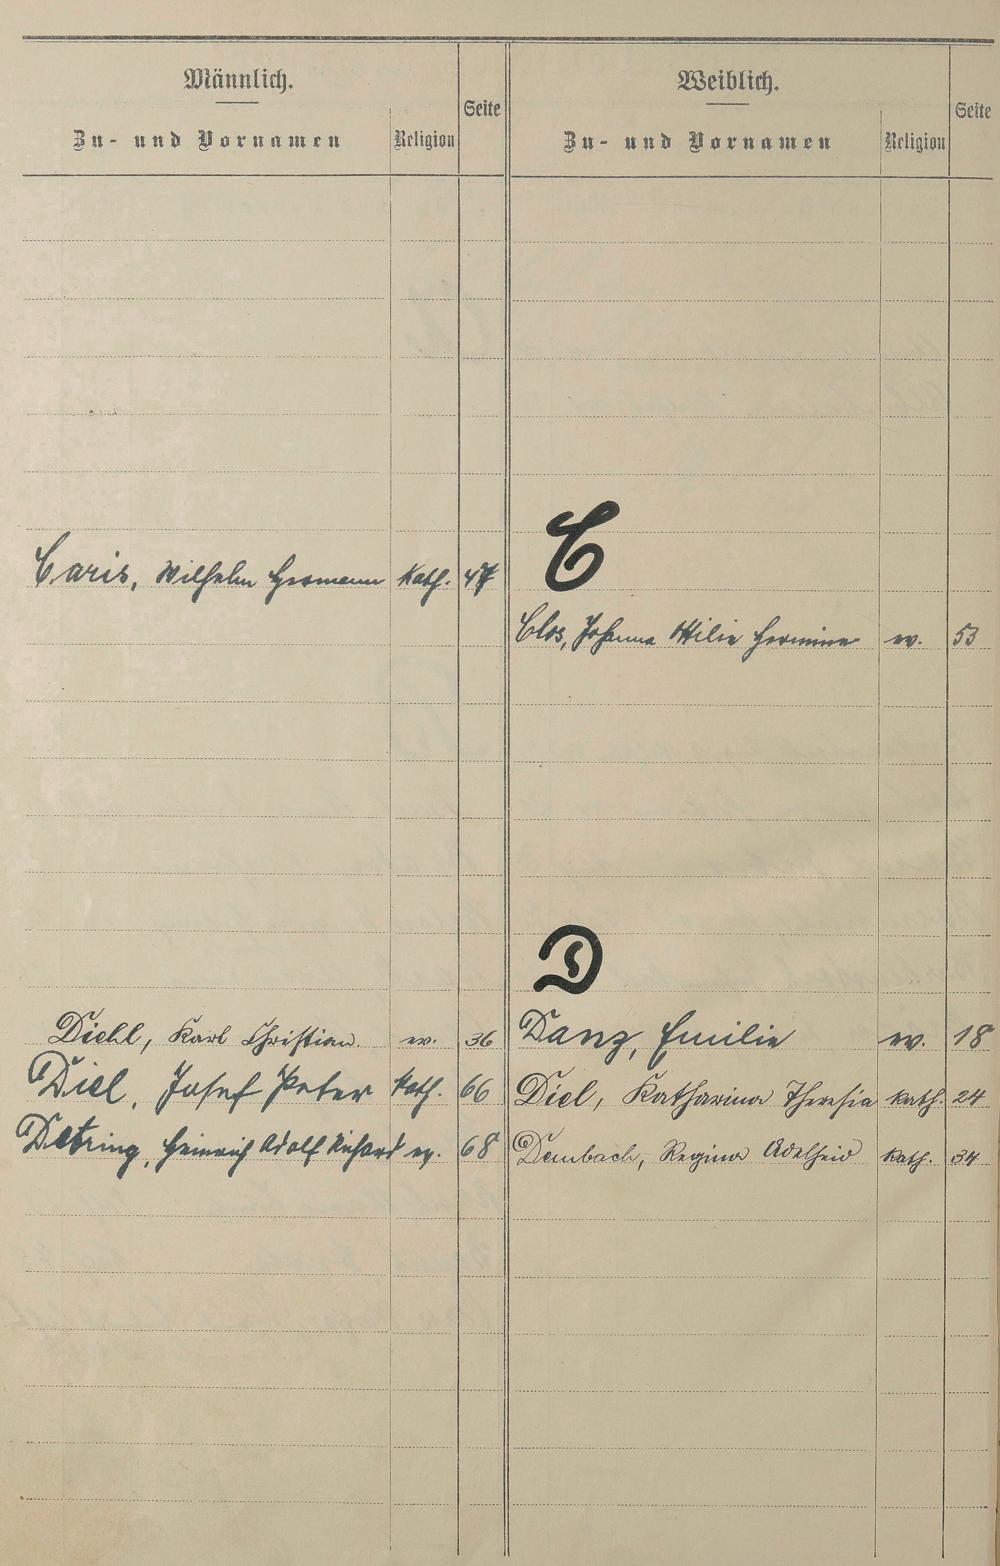 Männlich.
Zu- und Vornamen
Religion
Seite
Weiblich.
Zu- und Vornamen
Religion
Seite
C
Caris, Wilhelm Hermann kath. 47
Clos, Johanna Ottilie Hermine ev. 53
D
Diehl, Karl Christian ev. 36
Danz, Emilie ev. 18
Diel, Josef Peter kath. 66
Diel, Katharina Theresia kath. 24
Detring, Heinrich Adolf Richard ev. 68
Dembach, Regina Adelheid kath. 34